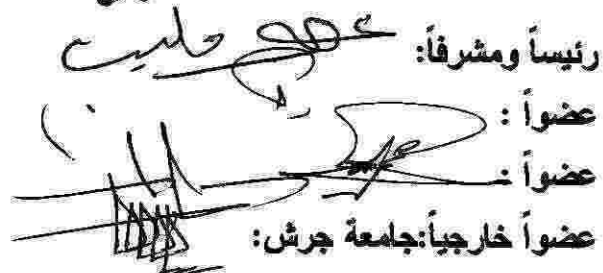 رئيساً ومشرفاً:
عضواً :
عضواً :
عضواً خارجياً:جامعة جرش: